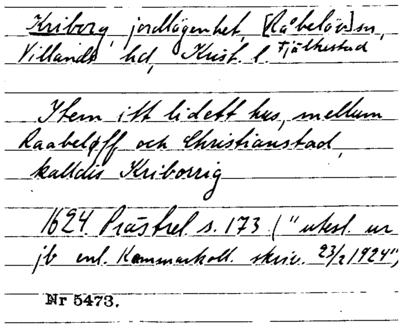 Kriborg, jordlägenhet, [Råbelöv] sn,
Villands hd, Krist. l. Fjälkestad
Item itt lidett hus, mellum
Raabeløff och Christianstad,
kalldis Kriborrig
1624. Prästrel s. 173 ("utesl. ur
jb enl. Kammarkoll. skriv. 23/2 1924",
Nr 5473.